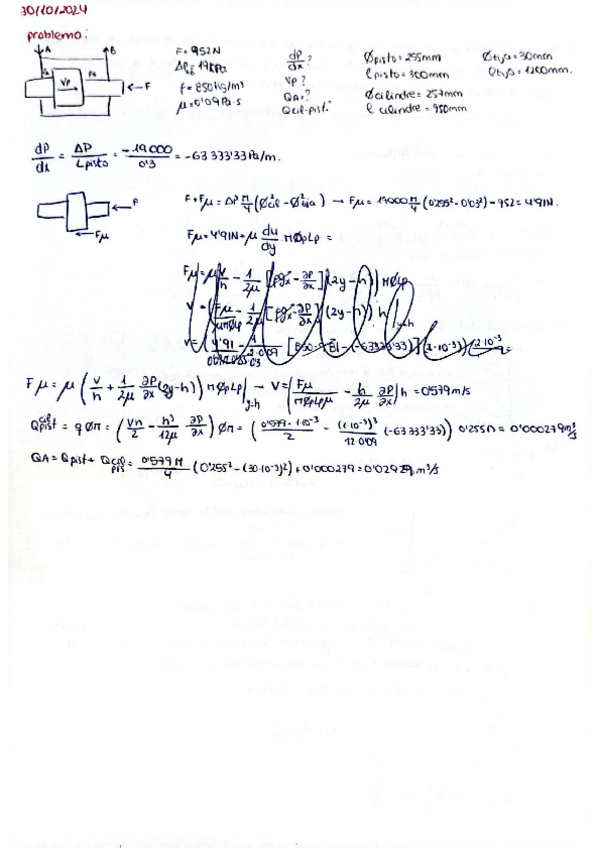 30/10/2024
problema:
A B
Vp
F
F = 952N
ΔPg = 19kPa
ρ = 850 kg/m³
μ = 0'09 Pa·s
dP/dx ?
Vp ?
QA = ?
Qcil-pist?
Øpisto = 255mm
lpisto = 300mm
Øcilindre = 257mm
l cilindre = 950mm
Øtija = 30mm
ltija = 1200mm
dP/dx = ΔP/Lpisto = -19000/0'3 = -63333'33 Pa/m.
F
Fμ
F + Fμ = ΔP π/4 (Ø²cil - Ø²tija) → Fμ = 19000 π/4 (0'255² - 0'03²) - 952 = 4'91N.
Fμ = 4'91N = μ du/dy · πØpLp =
Fμ = μ (V/h - 1/2μ [ρgx - ∂P/∂x] (2y-h)) πØLp
V = (Fμ/μπØLp - 1/2μ [ρgx - ∂P/∂x] (2y-h)) h |y=h
Fμ = μ (V/h + 1/2μ ∂P/∂x (2y-h)) πØpLp |y=h → V = | Fμ/πØpLpμ - h/2μ ∂P/∂x | h = 0'579 m/s
Qcil pist = q Øπ = (Vh/2 - h³/12μ ∂P/∂x) Øπ = (0'579·1·10⁻³/2 - (1·10⁻³)³/12·0'09 (-63333'33)) 0'255π = 0'000279 m³/s
QA = Qpist + Qcil pis = 0'579π/4 (0'255² - (30·10⁻³)²) + 0'000279 = 0'0292 m³/s